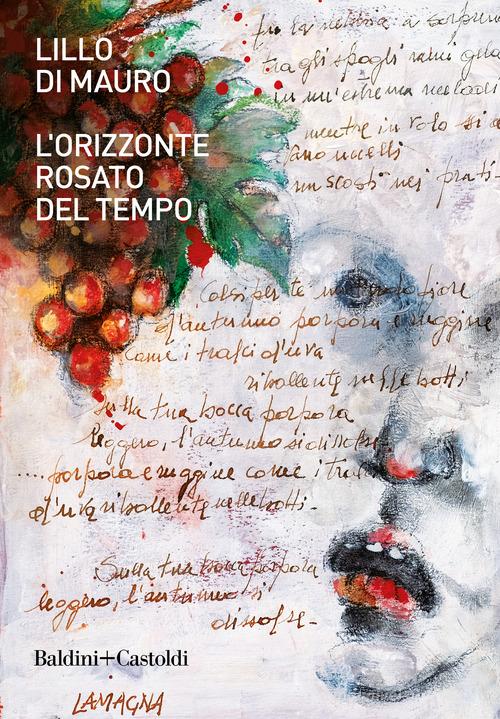 LILLO
DI MAURO
L'ORIZZONTE
ROSATO
DEL TEMPO
tra gli spogli rami
mentre in volo si
uccelli
nei prati
Colsi per te fiore
d'autunno porpora e ruggine
come i tralci d'uva
ribollente nelle botti
Sulla tua bocca porpora
leggero, l'autunno si dissolse
.... porpora e ruggine come i
d'uva ribollente nelle botti.
Sulla tua bocca porpora
leggero, l'autunno si
dissolse.
Baldini+Castoldi
LAMAGNA